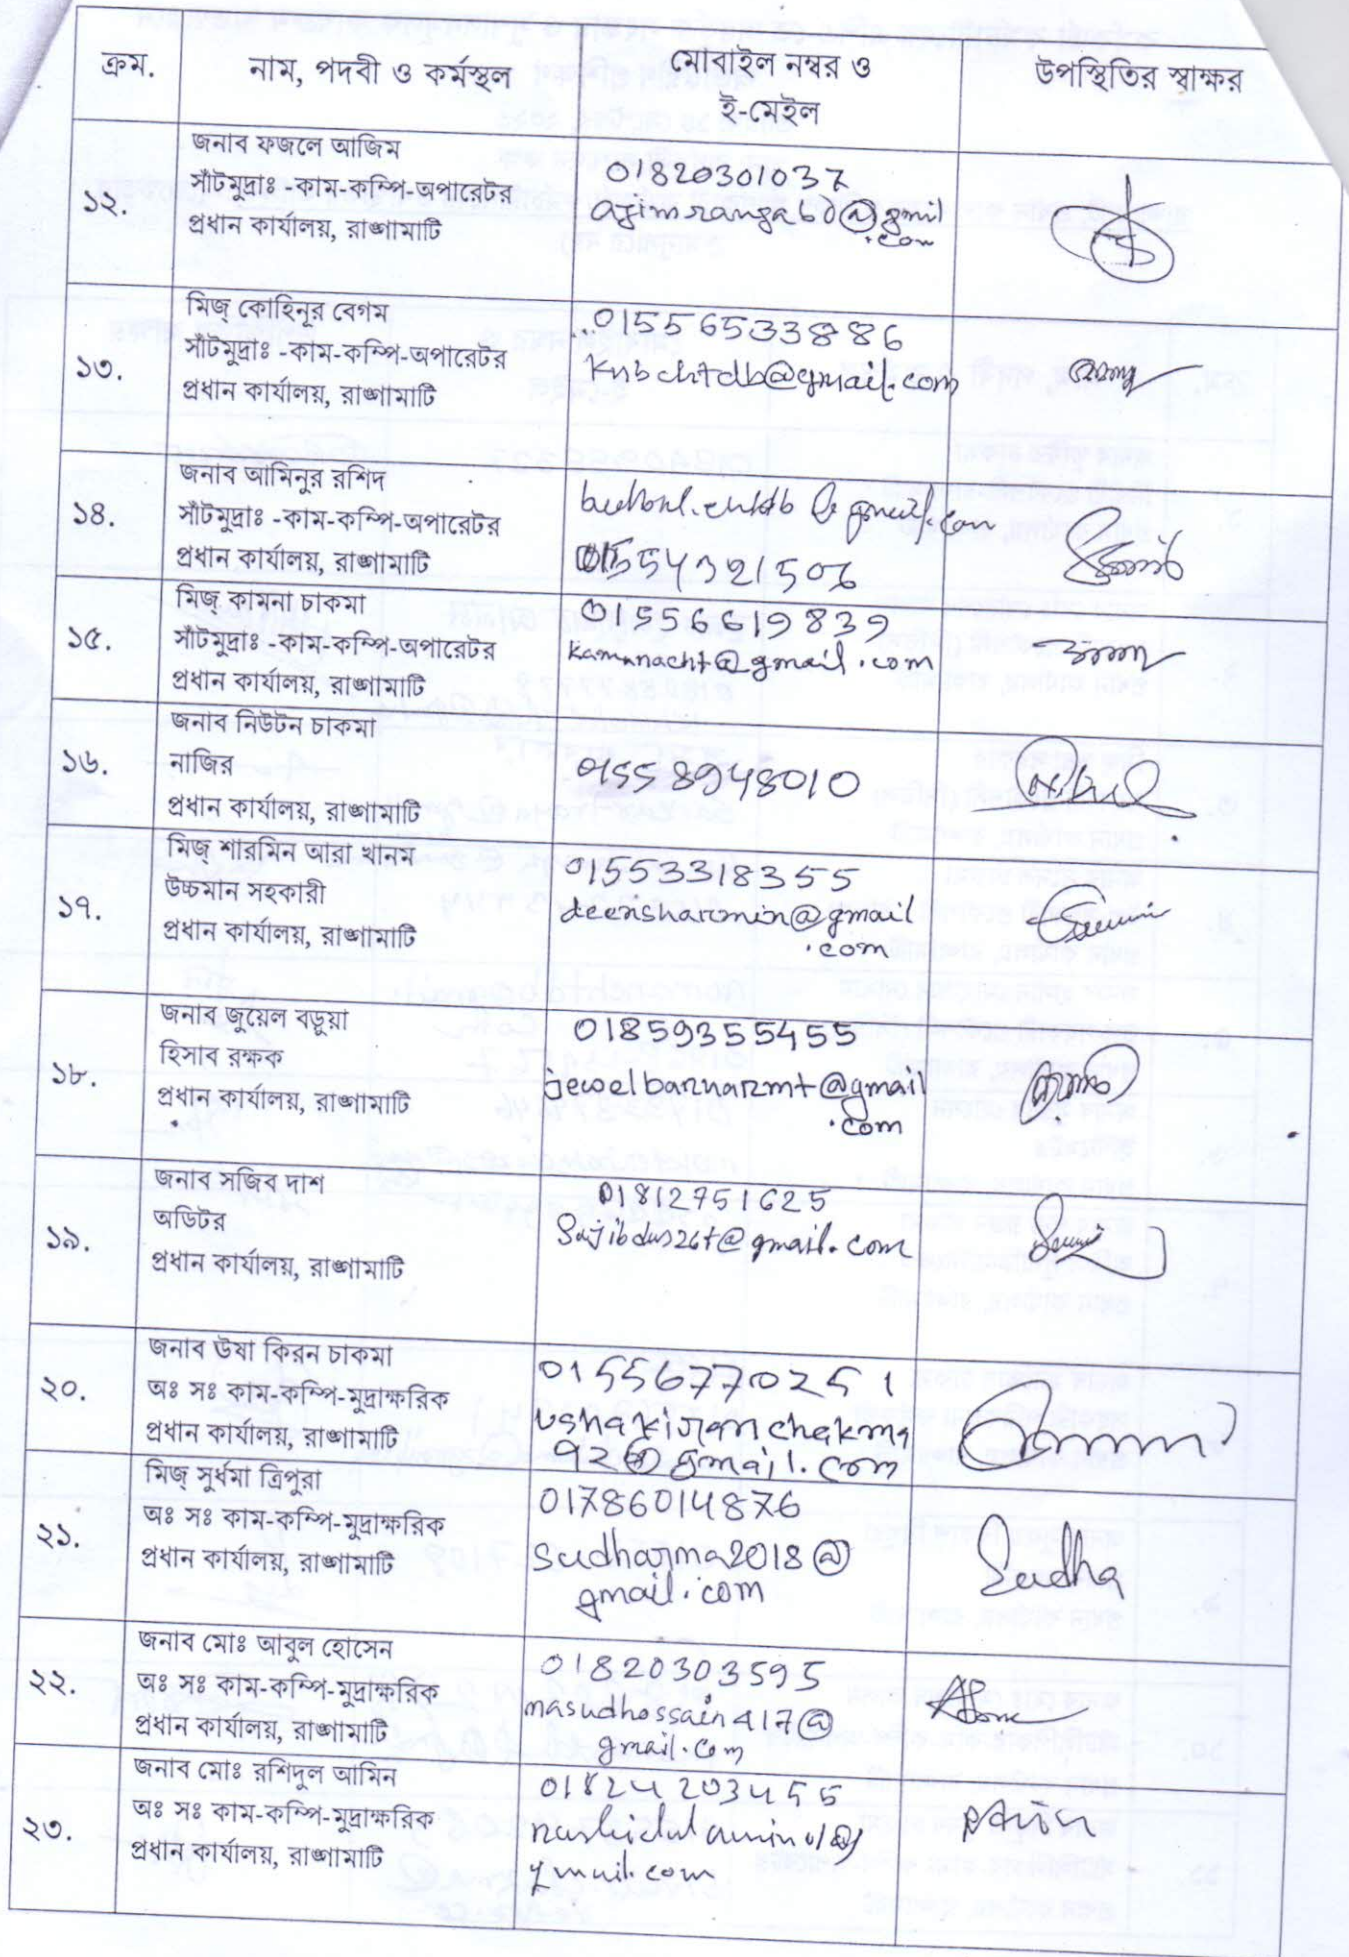 ক্রম.
নাম, পদবী ও কর্মস্থল
মোবাইল নম্বর ও
ই-মেইল
উপস্থিতির স্বাক্ষর
১২.
জনাব ফজলে আজিম
সাঁটমুদ্রাঃ -কাম-কম্পি-অপারেটর
প্রধান কার্যালয়, রাঙ্গামাটি
01820301037
azimranga60@gmil
.com
১৩.
মিজ্ কোহিনুর বেগম
সাঁটমুদ্রাঃ -কাম-কম্পি-অপারেটর
প্রধান কার্যালয়, রাঙ্গামাটি
01556533886
knbchtdb@gmail.com
১৪.
জনাব আমিনুর রশিদ
সাঁটমুদ্রাঃ -কাম-কম্পি-অপারেটর
প্রধান কার্যালয়, রাঙ্গামাটি
01554321506
১৫.
মিজ্ কামনা চাকমা
সাঁটমুদ্রাঃ -কাম-কম্পি-অপারেটর
প্রধান কার্যালয়, রাঙ্গামাটি
01556619839
kamanacht@gmail.com
১৬.
জনাব নিউটন চাকমা
নাজির
প্রধান কার্যালয়, রাঙ্গামাটি
01558948010
১৭.
মিজ্ শারমিন আরা খানম
উচ্চমান সহকারী
প্রধান কার্যালয়, রাঙ্গামাটি
01553318355
deensharmin@gmail
.com
১৮.
জনাব জুয়েল বড়ুয়া
হিসাব রক্ষক
প্রধান কার্যালয়, রাঙ্গামাটি
01859355455
jewelbaruarmt@gmail
.com
১৯.
জনাব সজিব দাশ
অডিটর
প্রধান কার্যালয়, রাঙ্গামাটি
01812751625
Sajibdas26t@gmail.com
২০.
জনাব ঊষা কিরন চাকমা
অঃ সঃ কাম-কম্পি-মুদ্রাক্ষরিক
প্রধান কার্যালয়, রাঙ্গামাটি
01556770251
ushakiranchakma
92@gmail.com
২১.
মিজ্ সুর্ধমা ত্রিপুরা
অঃ সঃ কাম-কম্পি-মুদ্রাক্ষরিক
প্রধান কার্যালয়, রাঙ্গামাটি
01786014876
sudharma2018@
gmail.com
Sudha
২২.
জনাব মোঃ আবুল হোসেন
অঃ সঃ কাম-কম্পি-মুদ্রাক্ষরিক
প্রধান কার্যালয়, রাঙ্গামাটি
01820303595
masudhossain417@
gmail.com
২৩.
জনাব মোঃ রশিদুল আমিন
অঃ সঃ কাম-কম্পি-মুদ্রাক্ষরিক
প্রধান কার্যালয়, রাঙ্গামাটি
01824203455
rashidulamin01@
gmail.com
RAmin